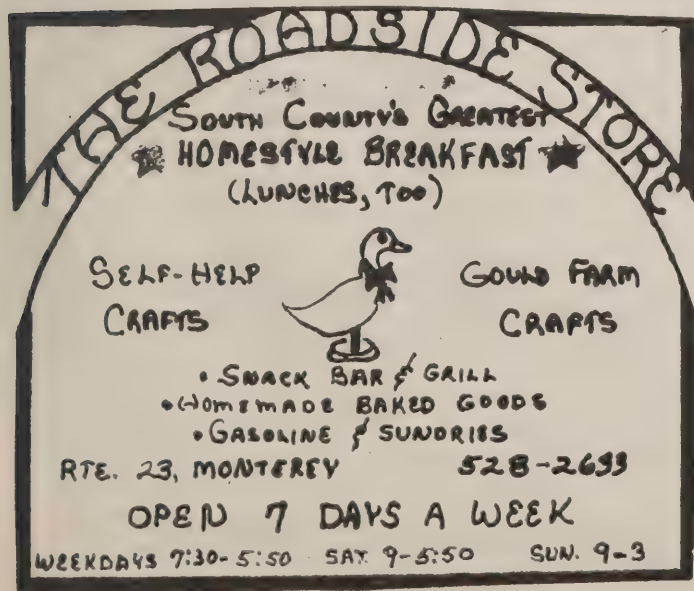 THE ROADSIDE STORE
SOUTH COUNTY'S GREATEST
HOMESTYLE BREAKFAST
(LUNCHES, TOO)
SELF-HELP GOULD FARM
CRAFTS CRAFTS
• SNACK BAR & GRILL
• HOMEMADE BAKED GOODS
• GASOLINE & SUNDRIES
RTE. 23, MONTEREY 528-2633
OPEN 7 DAYS A WEEK
WEEKDAYS 7:30-5:30 SAT. 9-5:30 SUN. 9-3